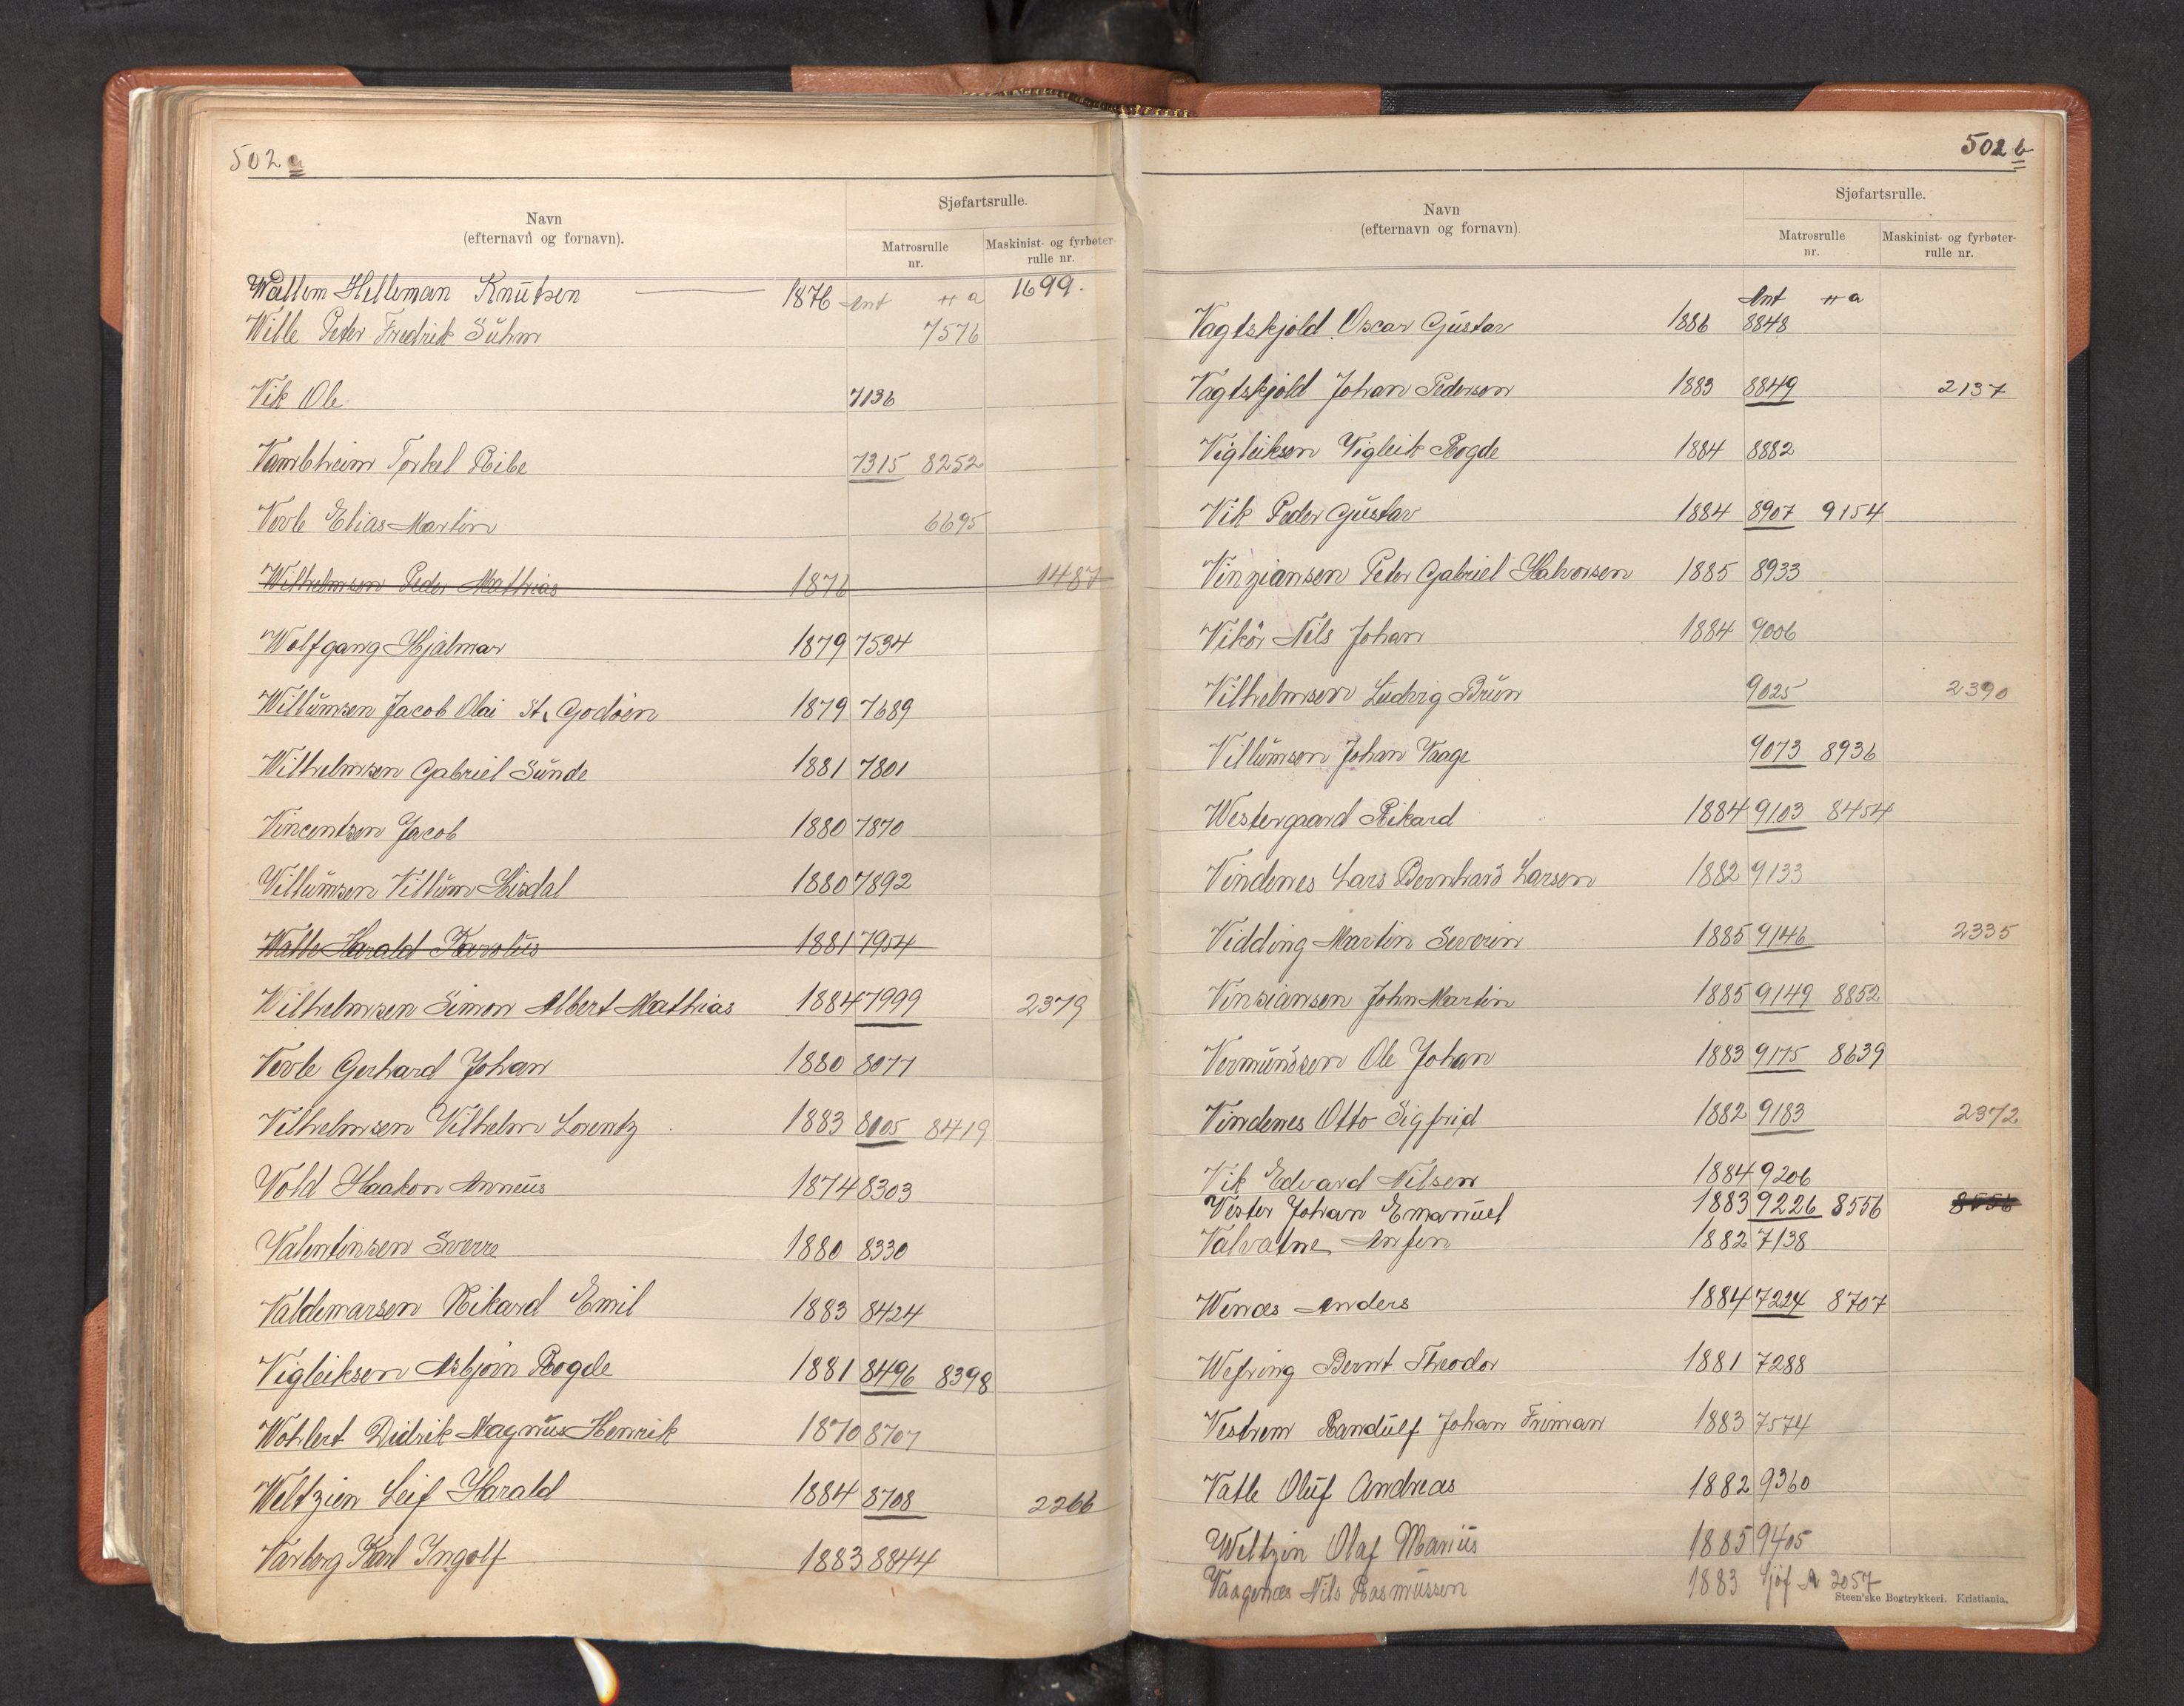 502 a
Navn
(efternavn og fornavn).
Sjøfartsrulle.
Matrosrulle
nr.
Maskinist- og fyrbøter-
rulle nr.
Wallem Helleman Knutsen 1876 Ent H a 1699.
Wille Peter Fredrik Suhm 7576
Vik Ole 7136
Vambheim Torkel Ribe 7315 8252
Vevle Elias Martin 6695
Wilhelmsen Peder Mathias 1876 1487
Wolfgang Hjalmar 1879 7534
Willumsen Jacob Olai St. Godøen 1879 7689
Wilhelmsen Gabriel Sunde 1881 7801
Vincentsen Jacob 1880 7870
Villumsen Villum Hisdal 1880 7892
Watle Harald Karolus 1881 7954
Wilhelmsen Simon Albert Mathias 1884 7999 2379
Vevle Gerhard Johan 1880 8077
Vilhelmsen Vilhelm Lorentz 1883 8105 8419
Vold Haakon Anneus 1874 8303
Valentinsen Sverre 1880 8330
Valdemarsen Rikard Emil 1883 8424
Vigleiksen Asbjørn Rogde 1881 8496 8398
Wohlert Didrik Magnus Henrik 1870 8707
Weltzien Leif Harald 1884 8708 2266
Varberg Karl Ingolf 1883 8844
502 b
Navn
(efternavn og fornavn).
Sjøfartsrulle.
Matrosrulle
nr.
Maskinist- og fyrbøter-
rulle nr.
Ent H a
Vagtskjold Oscar Gustav 1886 8848
Vagtskjold Johan Pedersen 1883 8849 2137
Vigleiksen Vigleik Rogde 1884 8882
Vik Peder Gustav 1884 8907 9154
Vinziansen Peter Gabriel Halvorsen 1885 8933
Vikör Nils Johan 1884 9006
Vilhelmsen Ludvig Brun 9025 2390
Villumsen Johan Vaage 9073 8936
Westergaard Rikard 1884 9103 8454
Vindenes Lars Bernhard Larsen 1882 9133
Vidding Martin Severin 1885 9146 2335
Vinsiansen John Martin 1885 9149 8852
Vermundsen Ole Johan 1883 9175 8639
Vindenes Otto Sigfrid 1882 9183 2372
Vik Edvard Nilsen 1884 9206
Vester Johan Emanuel 1883 9226 8556 8556
Valvatne Anfin 1882 7138
Wenæs Anders 1884 7224 8707
Wefring Bernt Theodor 1881 7288
Vestrem Randulf Johan Friman 1883 7574
Vatle Oluf Andreas 1882 9360
Weltzin Olaf Marius 1885 9405
Vaagenæs Nils Rasmussen 1883 Sjöf A 2057
Steen'ske Bogtrykkeri. Kristiania.